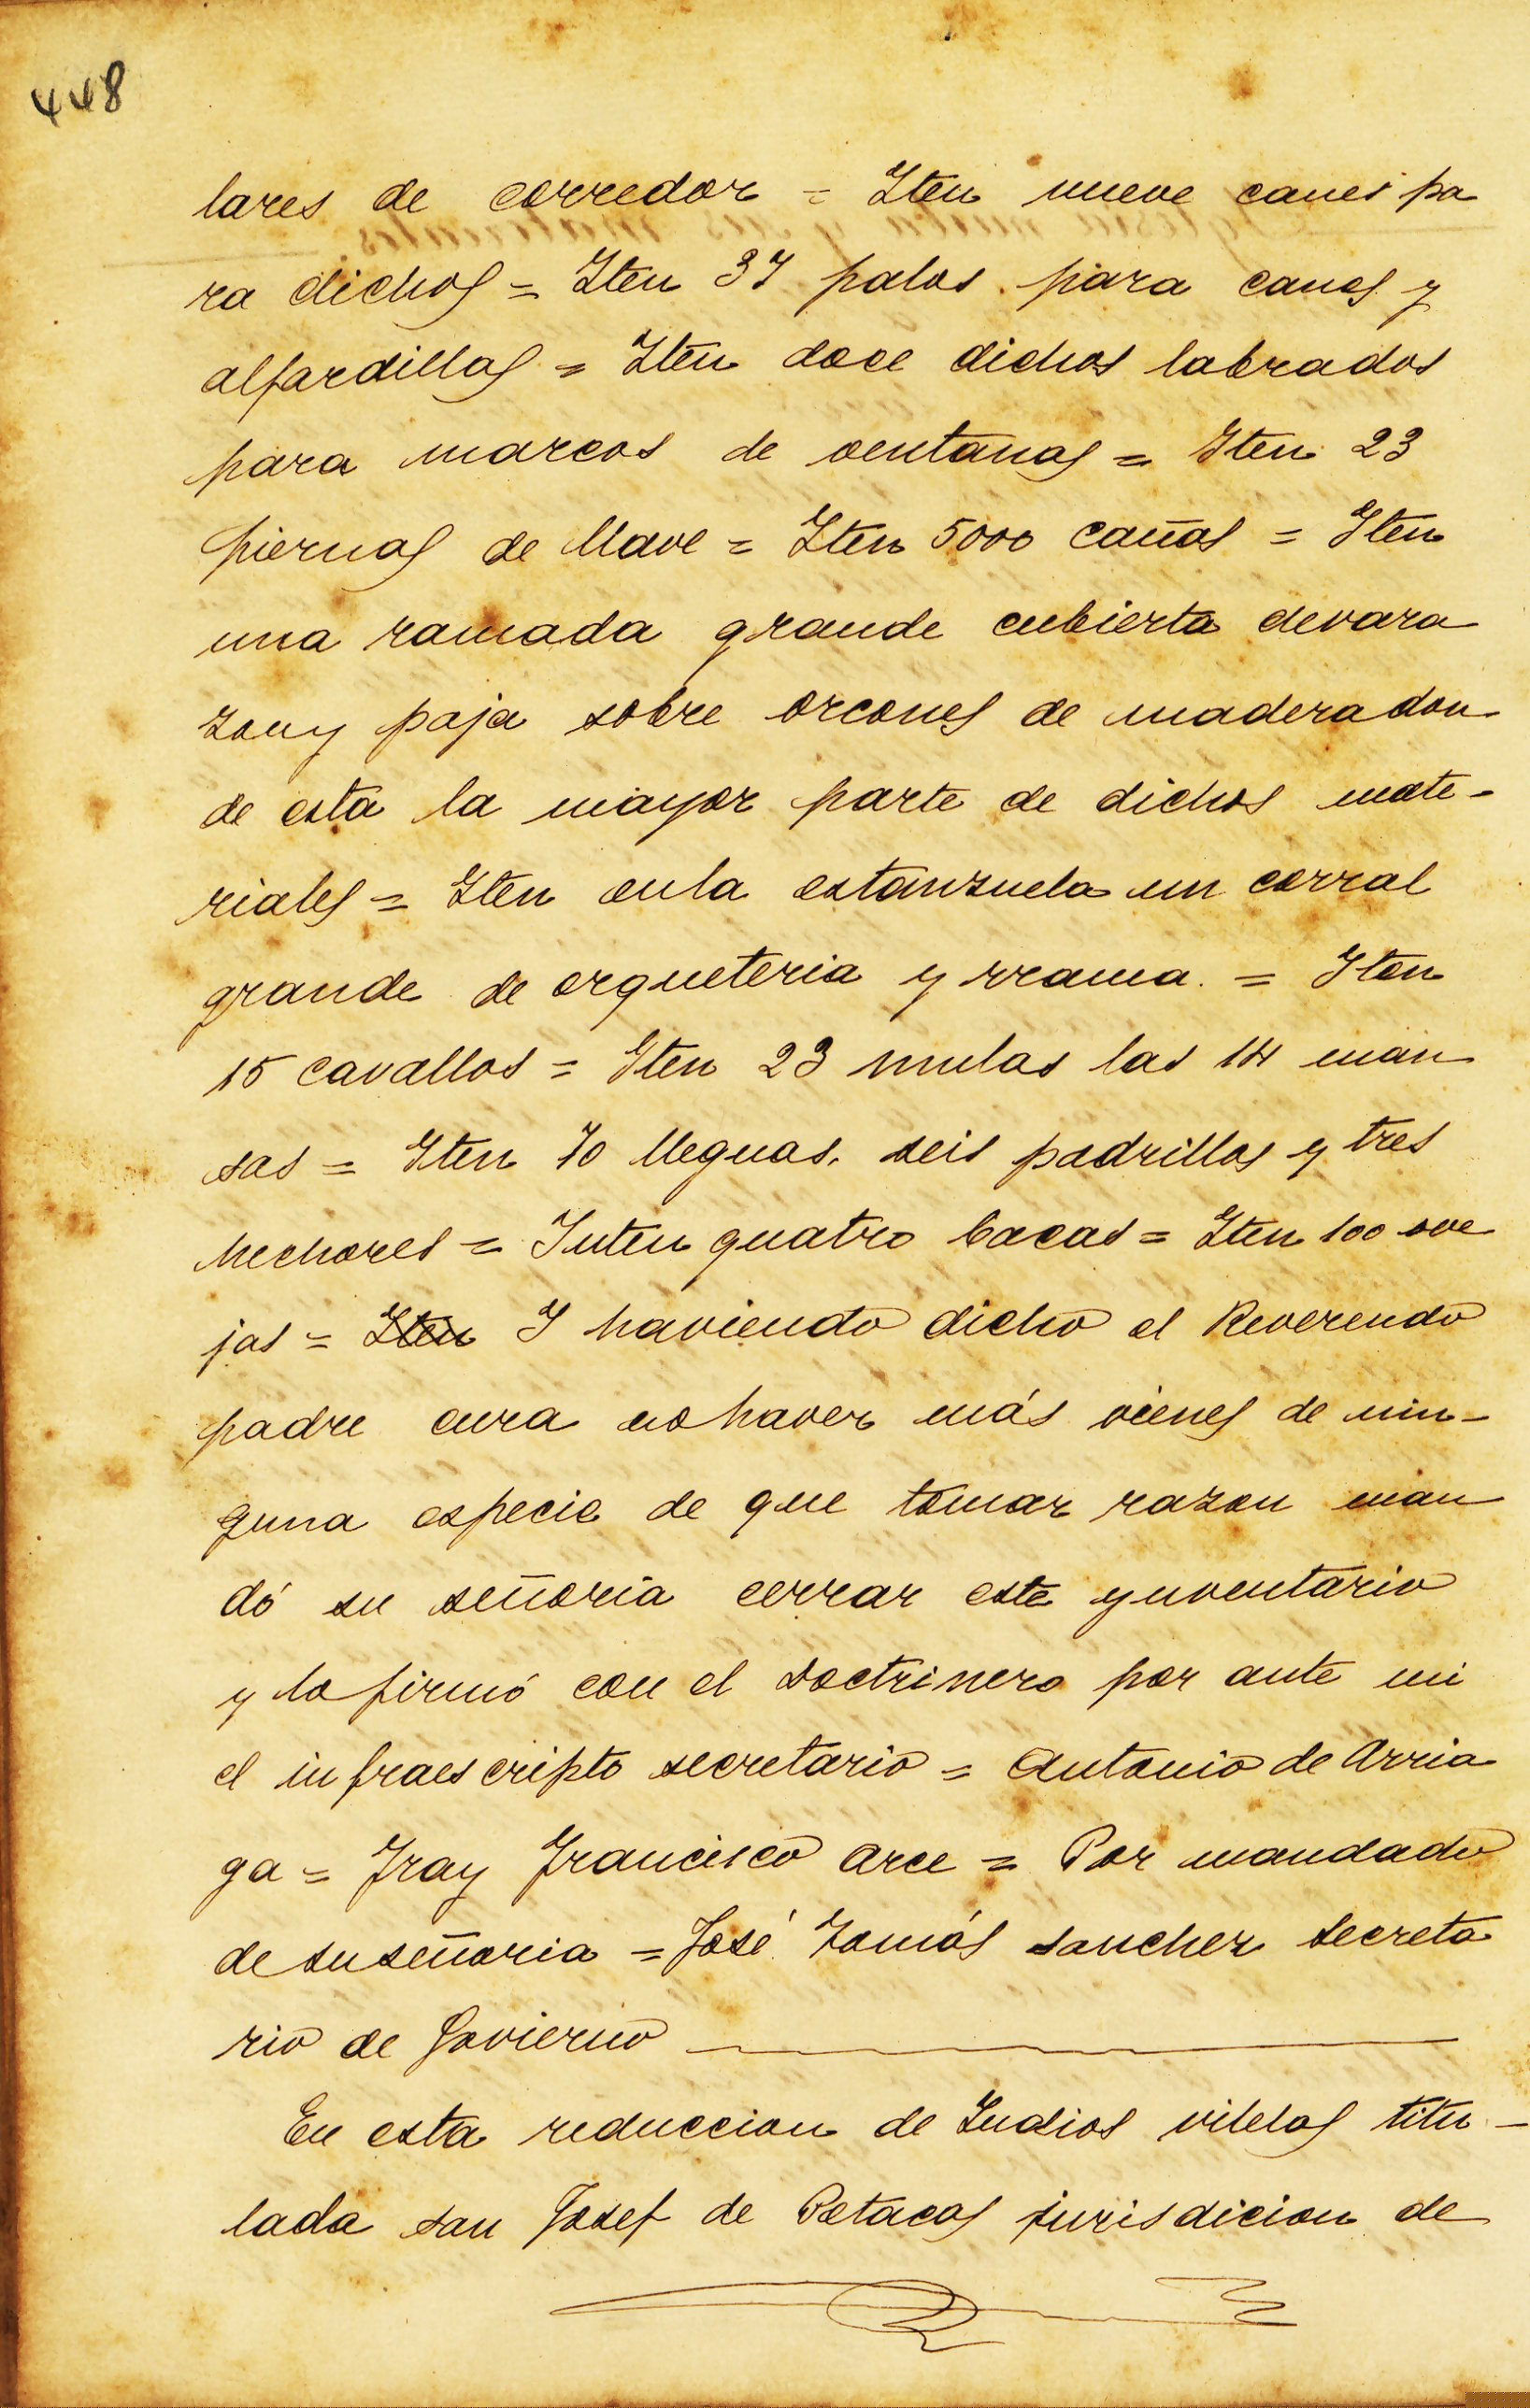 448
lares de corredor = Iten nueve canes pa
ra dichos = Iten 37 palos para canes y
alfardillas = Iten doce dichos labrados
para marcos de ventanas = Iten 23
piernas de llave = Iten 5000 cañas = Iten
una ramada grande cubierta devara
zon y paja sobre orcones de madera don
de esta la mayor parte de dichos mate-
riales = Iten enla estanzuela un corral
grande de orqueteria y rrama. = Iten
15 cavallos = Iten 23 mulas las 14 man
sas = Iten 70 lleguas, seis padrillos y tres
hechores = Inten quatro bacas = Iten 100 ove
jas = Iten I haviendo dicho el Reverendo
padre cura no haver más vienes de nin-
guna especie de que tomar razon man
dó su señoria cerrar este ynventario
y lo firmó con el Doctrinero por ante mi
el infraescripto secretario = Antonio de Arria
ga = Fray Francisco Arce = Por mandado
de su señoria = José Tomás Sanchez Secreta
rio de Govierno
En esta reduccion de Indios vilelas titu-
lada san Josef de Petacas jurisdicion de